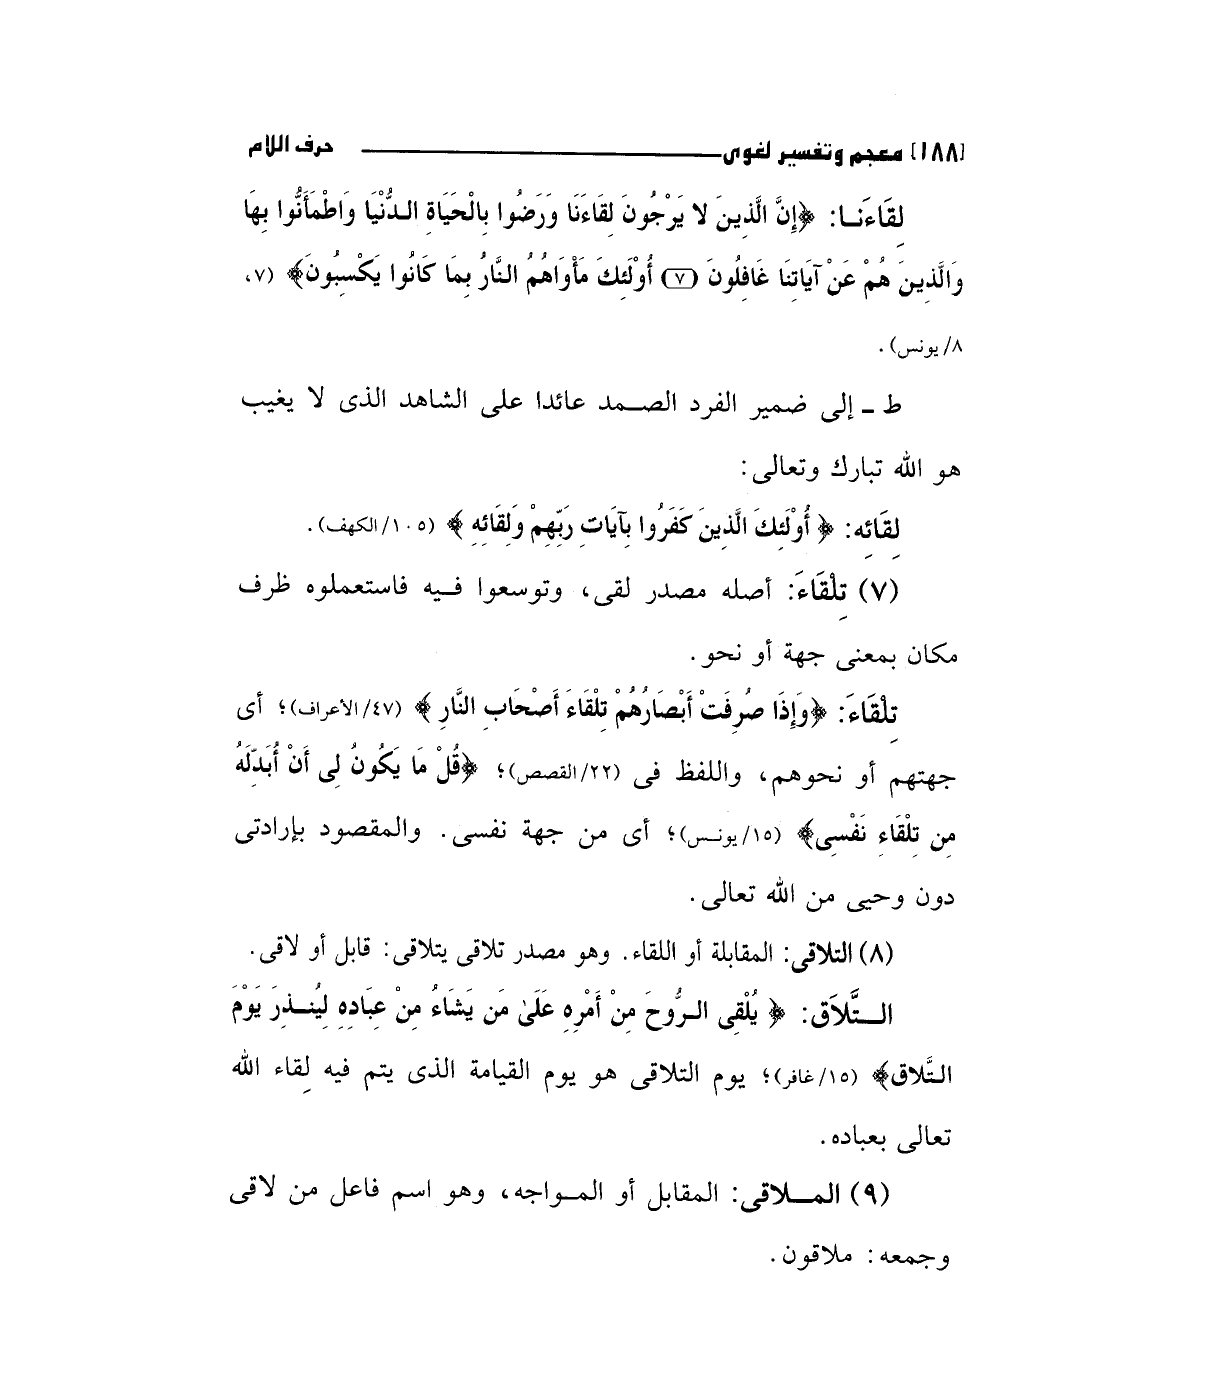 [١٨٨] معجم وتفسير لغوى ــــــــــ حرف اللام
لِقَاءَنَـا: ﴿إِنَّ الَّذِينَ لا يَرْجُونَ لِقَاءَنَا وَرَضُوا بِالْحَيَاةِ الـدُّنْيَا وَاطْمَأَنُّوا بِهَا
وَالَّذِينَ هُمْ عَنْ آيَاتِنَا غَافِلُونَ (٧) أُوْلَئِكَ مَأْوَاهُمُ النَّارُ بِمَا كَانُوا يَكْسِبُونَ﴾ (٧،
٨/ يونس).
ط ـ إلى ضمير الفرد الصـمد عائدا على الشاهد الذى لا يغيب
هو الله تبارك وتعالى:
لِقَائِهِ: ﴿ أُوْلَئِكَ الَّذِينَ كَفَرُوا بِآيَاتِ رَبِّهِمْ وَلِقَائِهِ ﴾ (١٠٥/الكهف).
(٧) تِلْقَاءَ: أصله مصدر لقى، وتوسعوا فـيه فاستعملوه ظرف
مكان بمعنى جهة أو نحو.
تِلْقَاءَ: ﴿وَإِذَا صُرِفَتْ أَبْصَارُهُمْ تِلْقَاءَ أَصْحَابِ النَّارِ ﴾ (٤٧/الأعراف)؛ أى
جهتهم أو نحوهم، واللفظ فى (٢٢/القصص)؛ ﴿قُلْ مَا يَكُونُ لِى أَنْ أُبَدِّلَهُ
مِن تِلْقَاءِ نَفْسِى﴾ (١٥/يونـس)؛ أى من جهة نفسى. والمقصود بإرادتى
دون وحيى من الله تعالى.
(٨) التلاقى: المقابلة أو اللقاء. وهو مصدر تلاقى يتلاقى: قابل أو لاقى.
الــتَّلاَقِ: ﴿ يُلْقِى الـرُّوحَ مِنْ أَمْرِهِ عَلَىٰ مَن يَشَاءُ مِنْ عِبَادِهِ لِيُنـذِرَ يَوْمَ
التَّلاقِ﴾ (١٥/غافر)؛ يوم التلاقى هو يوم القيامة الذى يتم فيه لِقاء الله
تعالى بعباده.
(٩) المــلاقى: المقابل أو المـواجه، وهو اسم فاعل من لاقى
وجمعه: ملاقون.